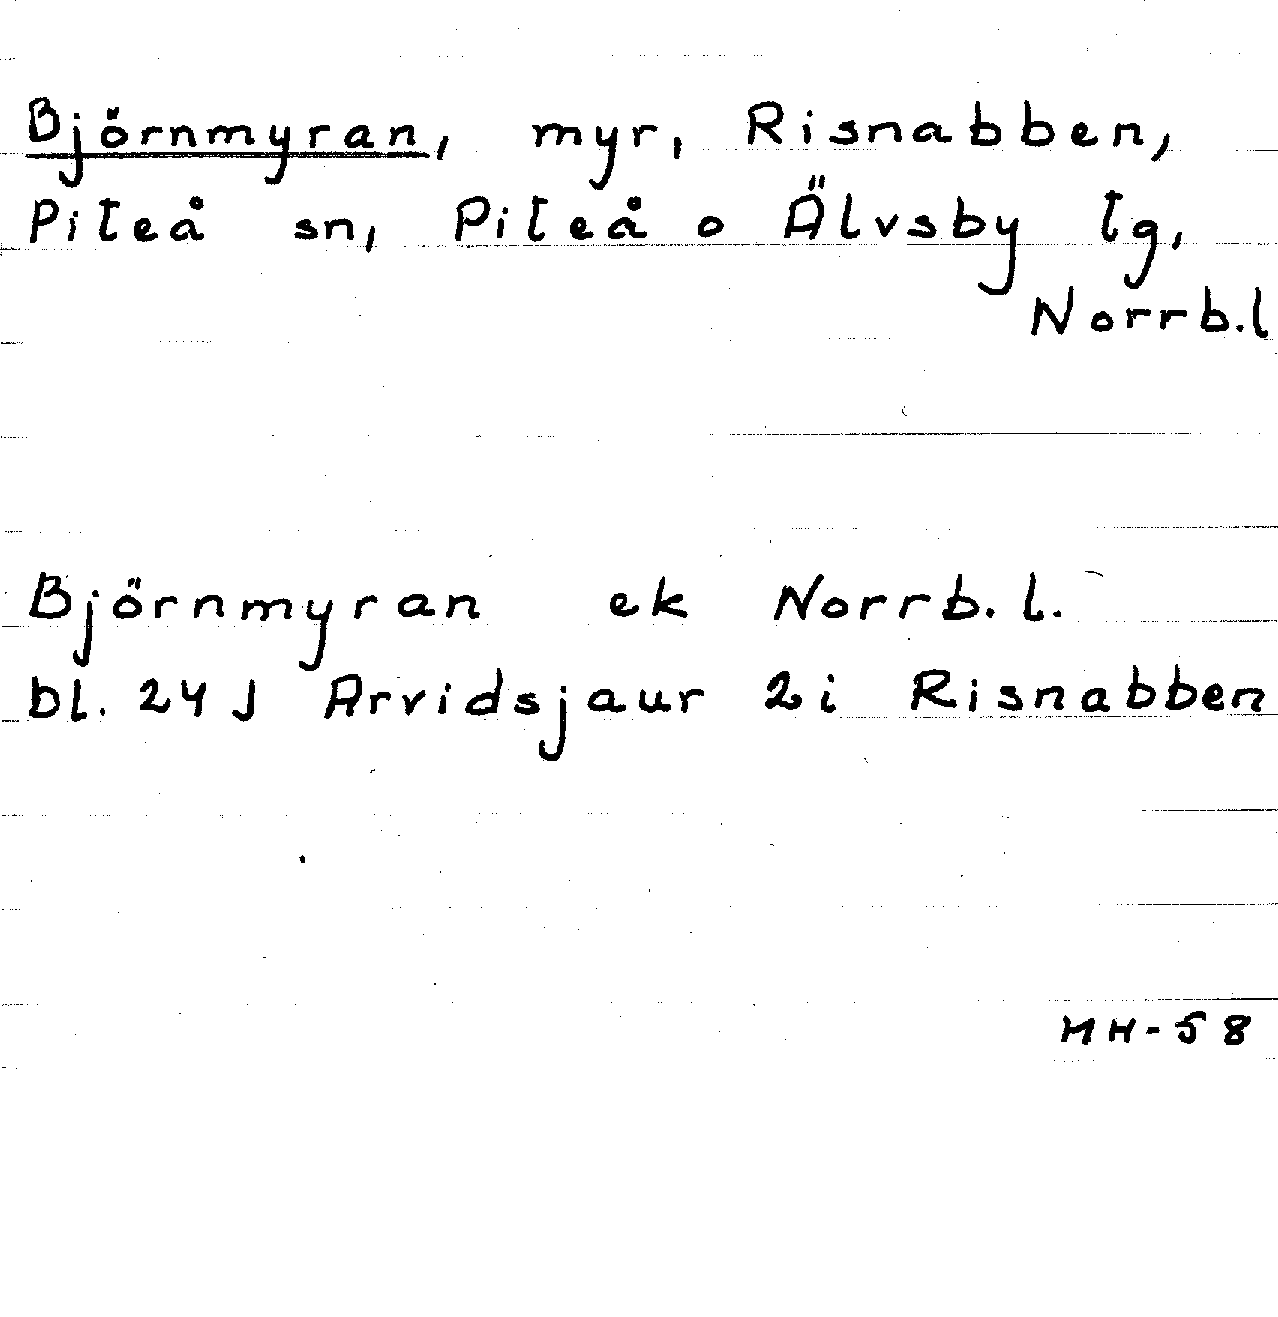 Björnmyran, myr, Risnabben,
Piteå sn, Piteå o Älvsby tg,
Norrb.l
Björnmyran ek Norrb.l.
bl. 24J Arvidsjaur 2i Risnabben
MH-58